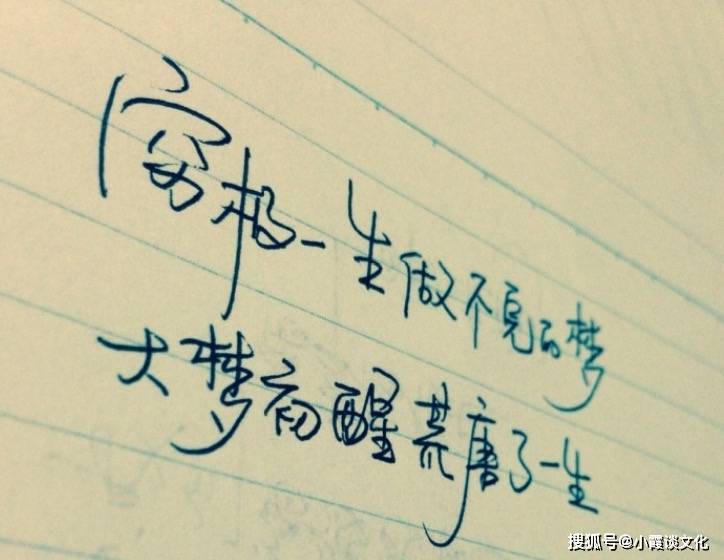 穷极一生做不完的梦
大梦初醒荒唐了一生
搜狐号@小霞谈文化